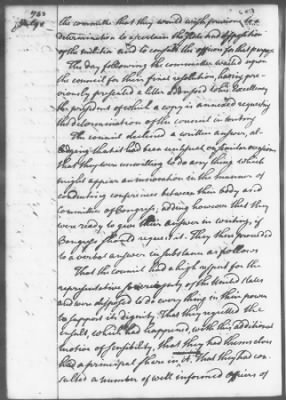 1783
July 1
the committee that they would wish previous to a
determination to ascertain the state and disposition
of the militia and to consult the officers for that purpose.
The day following the committee waited upon
the council for their final resolution, having pre-
viously presented a letter addressed to his Excellency
the president of which a copy is annexed requesting
the determination of the council in writing
The council declined a written answer, al-
ledging that it had been unusual on similar occasions
that they were unwilling to do any thing which
might appear an innovation in the manner of
conducting conferences between their body and
committees of Congress, adding however that they
were ready to give their answer in writing, if
Congress should request it. They then proceeded
to a verbal answer in substance as follows
That the council had a high respect for the
representative sovereignty of the United States
and were disposed to do every thing in their power
to support its dignity. That they regretted the
insult, which had happened, with this additional
motive of sensibility, that they had themselves
had a principal share in it. That they had con-
sulted a number of well informed officers of